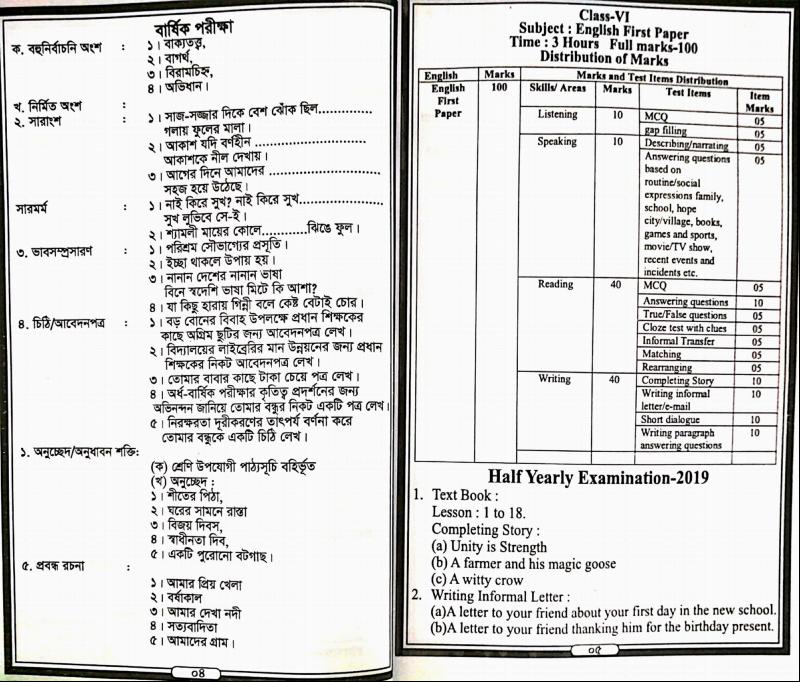 বার্ষিক পরীক্ষা
ক. বহুনির্বাচনি অংশ : ১। বাক্যতত্ত্ব,
২। বাগর্থ,
৩। বিরামচিহ্ন,
৪। অভিধান।
খ. নির্মিত অংশ :
২. সারাংশ : ১। সাজ-সজ্জার দিকে বেশ ঝোঁক ছিল..............
গলায় ফুলের মালা।
২। আকাশ যদি বর্ণহীন ............................
আকাশকে নীল দেখায়।
৩। আগের দিনে আমাদের ............................
সহজ হয়ে উঠেছে।
সারমর্ম : ১। নাই কিরে সুখ? নাই কিরে সুখ.....................
সুখ লভিবে সে-ই।
২। শ্যামলী মায়ের কোলে............ঝিঙে ফুল।
৩. ভাবসম্প্রসারণ : ১। পরিশ্রম সৌভাগ্যের প্রসূতি।
২। ইচ্ছা থাকলে উপায় হয়।
৩। নানান দেশের নানান ভাষা
বিনে স্বদেশি ভাষা মিটে কি আশা?
৪। যা কিছু হারায় গিন্নী বলে কেষ্ট বেটাই চোর।
৪. চিঠি/আবেদনপত্র : ১। বড় বোনের বিবাহ উপলক্ষে প্রধান শিক্ষকের
কাছে অগ্রিম ছুটির জন্য আবেদনপত্র লেখ।
২। বিদ্যালয়ের লাইব্রেরির মান উন্নয়নের জন্য প্রধান
শিক্ষকের নিকট আবেদনপত্র লেখ।
৩। তোমার বাবার কাছে টাকা চেয়ে পত্র লেখ।
৪। অর্ধ-বার্ষিক পরীক্ষার কৃতিত্ব প্রদর্শনের জন্য
অভিনন্দন জানিয়ে তোমার বন্ধুর নিকট একটি পত্র লেখ।
৫। নিরক্ষরতা দূরীকরণের তাৎপর্য বর্ণনা করে
তোমার বন্ধুকে একটি চিঠি লেখ।
১. অনুচ্ছেদ/অনুধাবন শক্তি:
(ক) শ্রেণি উপযোগী পাঠ্যসূচি বহির্ভূত
(খ) অনুচ্ছেদ :
১। শীতের পিঠা,
২। ঘরের সামনে রাস্তা
৩। বিজয় দিবস,
৪। স্বাধীনতা দিব,
৫। একটি পুরোনো বটগাছ।
৫. প্রবন্ধ রচনা :
১। আমার প্রিয় খেলা
২। বর্ষাকাল
৩। আমার দেখা নদী
৪। সত্যবাদিতা
৫। আমাদের গ্রাম।
০৪
Class-VI
Subject : English First Paper
Time : 3 Hours Full marks-100
Distribution of Marks
English Marks Marks and Test Items Distribution
English First Paper 100 Skills/ Areas Marks Test Items Item Marks
Listening 10 MCQ 05
gap filling 05
Speaking 10 Describing/narrating 05
Answering questions 05
based on
routine/social
expressions family,
school, hope
city/village, books,
games and sports,
movie/TV show,
recent events and
incidents etc.
Reading 40 MCQ 05
Answering questions 10
True/False questions 05
Cloze test with clues 05
Informal Transfer 05
Matching 05
Rearranging 05
Writing 40 Completing Story 10
Writing informal 10
letter/e-mail
Short dialogue 10
Writing paragraph 10
answering questions
Half Yearly Examination-2019
1. Text Book :
Lesson : 1 to 18.
Completing Story :
(a) Unity is Strength
(b) A farmer and his magic goose
(c) A witty crow
2. Writing Informal Letter :
(a)A letter to your friend about your first day in the new school.
(b)A letter to your friend thanking him for the birthday present.
০৫